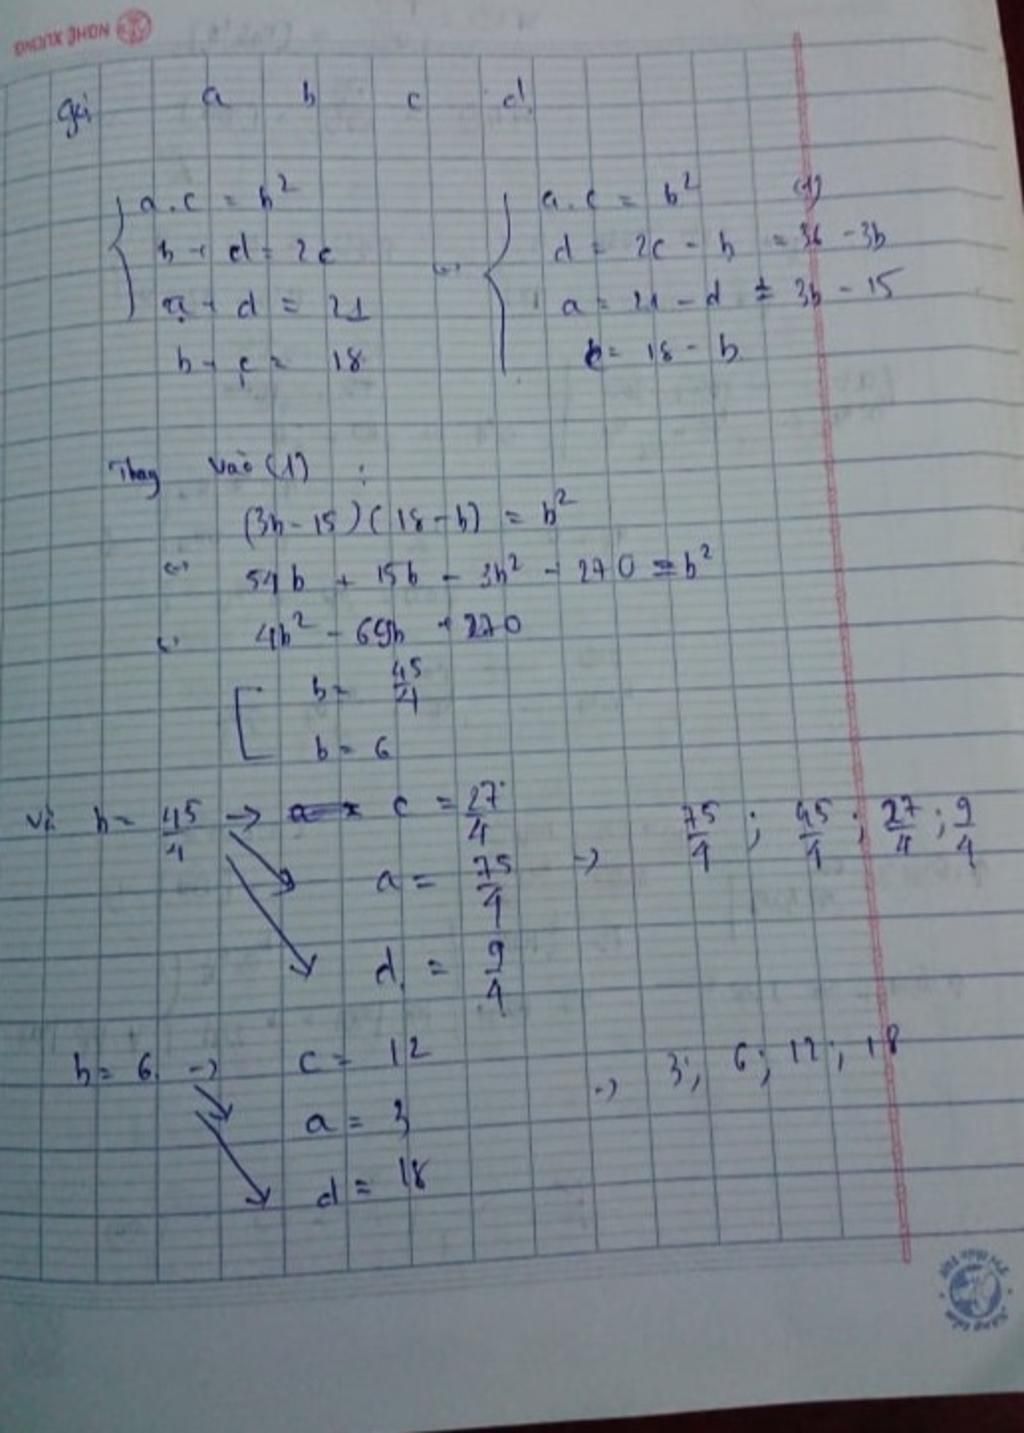 NGHỆ XUONG
gọi a b c d
a.c = b²
b + d = 2c
a + d = 21
b + c = 18
<=> a.c = b² (1)
d = 2c - b = 36 - 3b
a = 21 - d = 3b - 15
c = 18 - b
Thay vào (1) :
(3b - 15)(18 - b) = b²
<=> 54b + 15b - 3b² - 270 = b²
<=> 4b² - 69b + 270
b = 45/4
b = 6
Với b = 45/4 -> c = 27/4
a = 75/4 -> 75/4 ; 45/4 ; 27/4 ; 9/4
d = 9/4
b = 6 -> c = 12
a = 3 -> 3 ; 6 ; 12 ; 18
d = 18